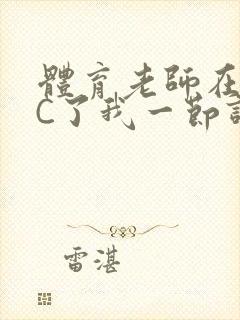 體育老師在
C了我一節
雷湛